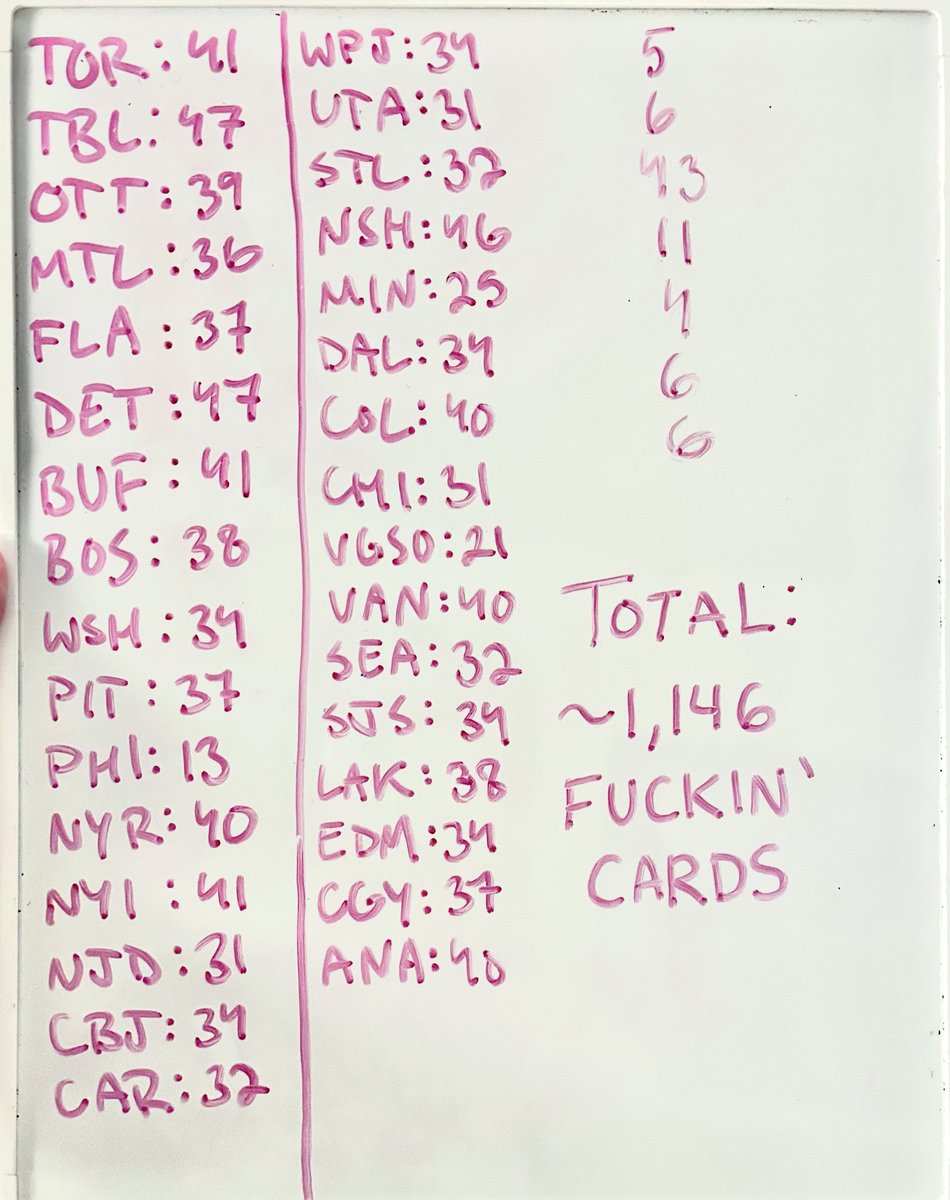 TOR: 41
TBL: 47
OTT: 39
MTL: 36
FLA: 37
DET: 47
BUF: 41
BOS: 38
WSH: 34
PIT: 37
PHI: 13
NYR: 40
NYI: 41
NJD: 31
CBJ: 34
CAR: 32
WPJ: 34
UTA: 31
STL: 32
NSH: 46
MIN: 25
DAL: 34
COL: 40
CHI: 31
VGSO: 21
VAN: 40
SEA: 32
SJS: 34
LAK: 38
EDM: 34
CGY: 37
ANA: 40
5
6
43
11
4
6
6
TOTAL:
~1,146
FUCKIN'
CARDS